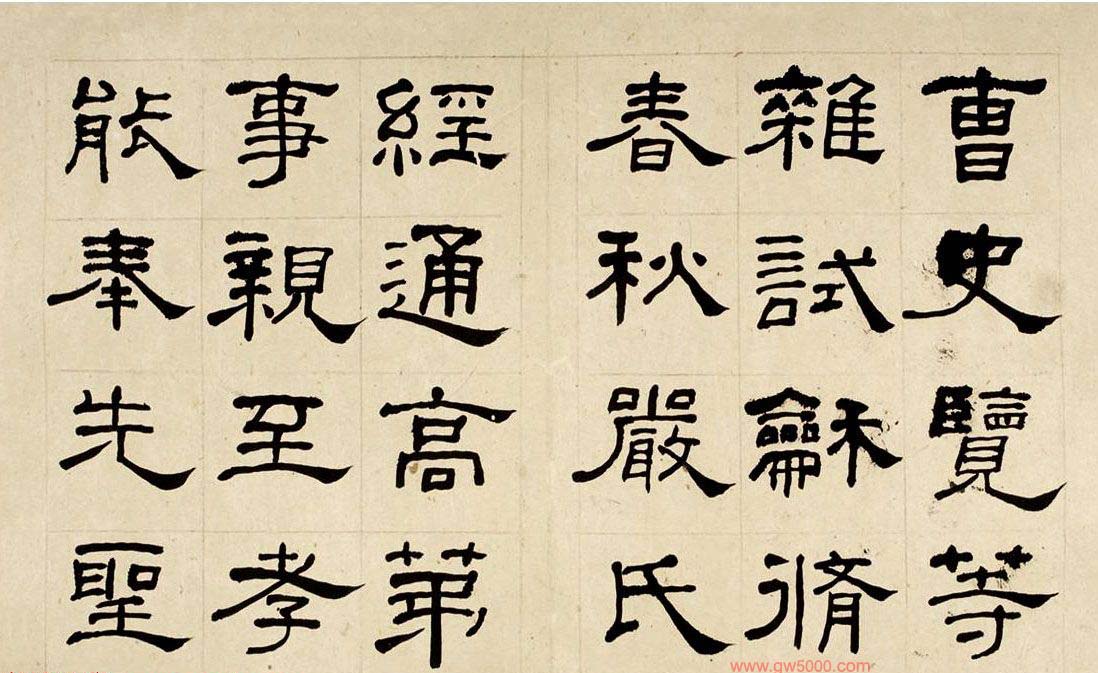 曹史覽等
雜試龢脩
春秋嚴氏
經通高第
事親至孝
能奉先聖
www.gw5000.com